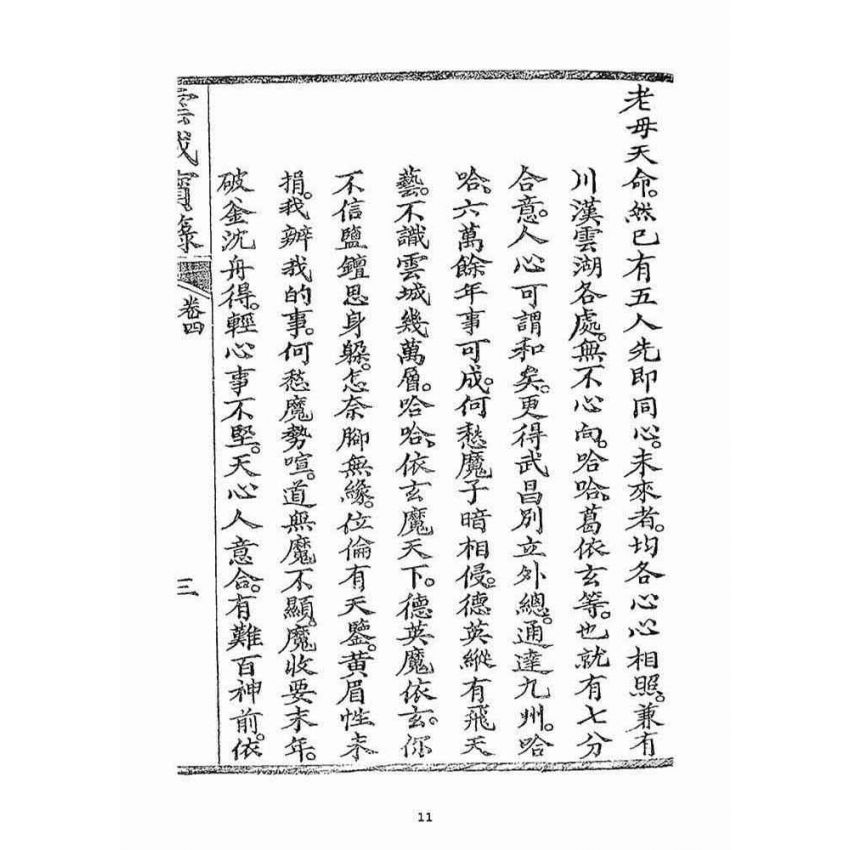 老母天命。然已有五人先即同心。未來者。均各心心相照。兼有
川漢雲湖各處。無不心向。哈哈。葛依玄等。也就有七分
合意。人心可謂和矣。更得武昌別立外總。通達九州。哈
哈。六萬餘年事可成。何愁魔子暗相侵。德英縱有飛天
藝。不識雲城幾萬層。哈哈。依玄魔天下。德英魔依玄。你
不信鹽鐺思身躲。怎奈腳無緣。位倫有天鑒。黃眉性未
捐。我辦我的事。何愁魔勢喧。道無魔不顯。魔收要末年。
破釜沈舟得。輕心事不堅。天心人意合。有難百神前。依
雲城寶籙
卷四
三
11